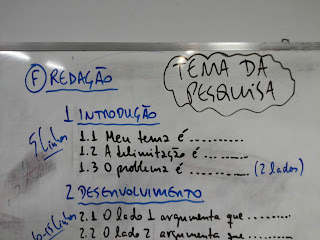 Ⓕ REDAÇÃO
TEMA DA
PESQUISA
1 INTRODUÇÃO
5 linhas
1.1 Meu tema é ..........
1.2 A delimitação é ... ......
1.3 O problema é .......... (2 lados)
2 DESENVOLVIMENTO
2.1 O lado 1 argumenta que .........
2.2 O lado 2 argumenta que .......